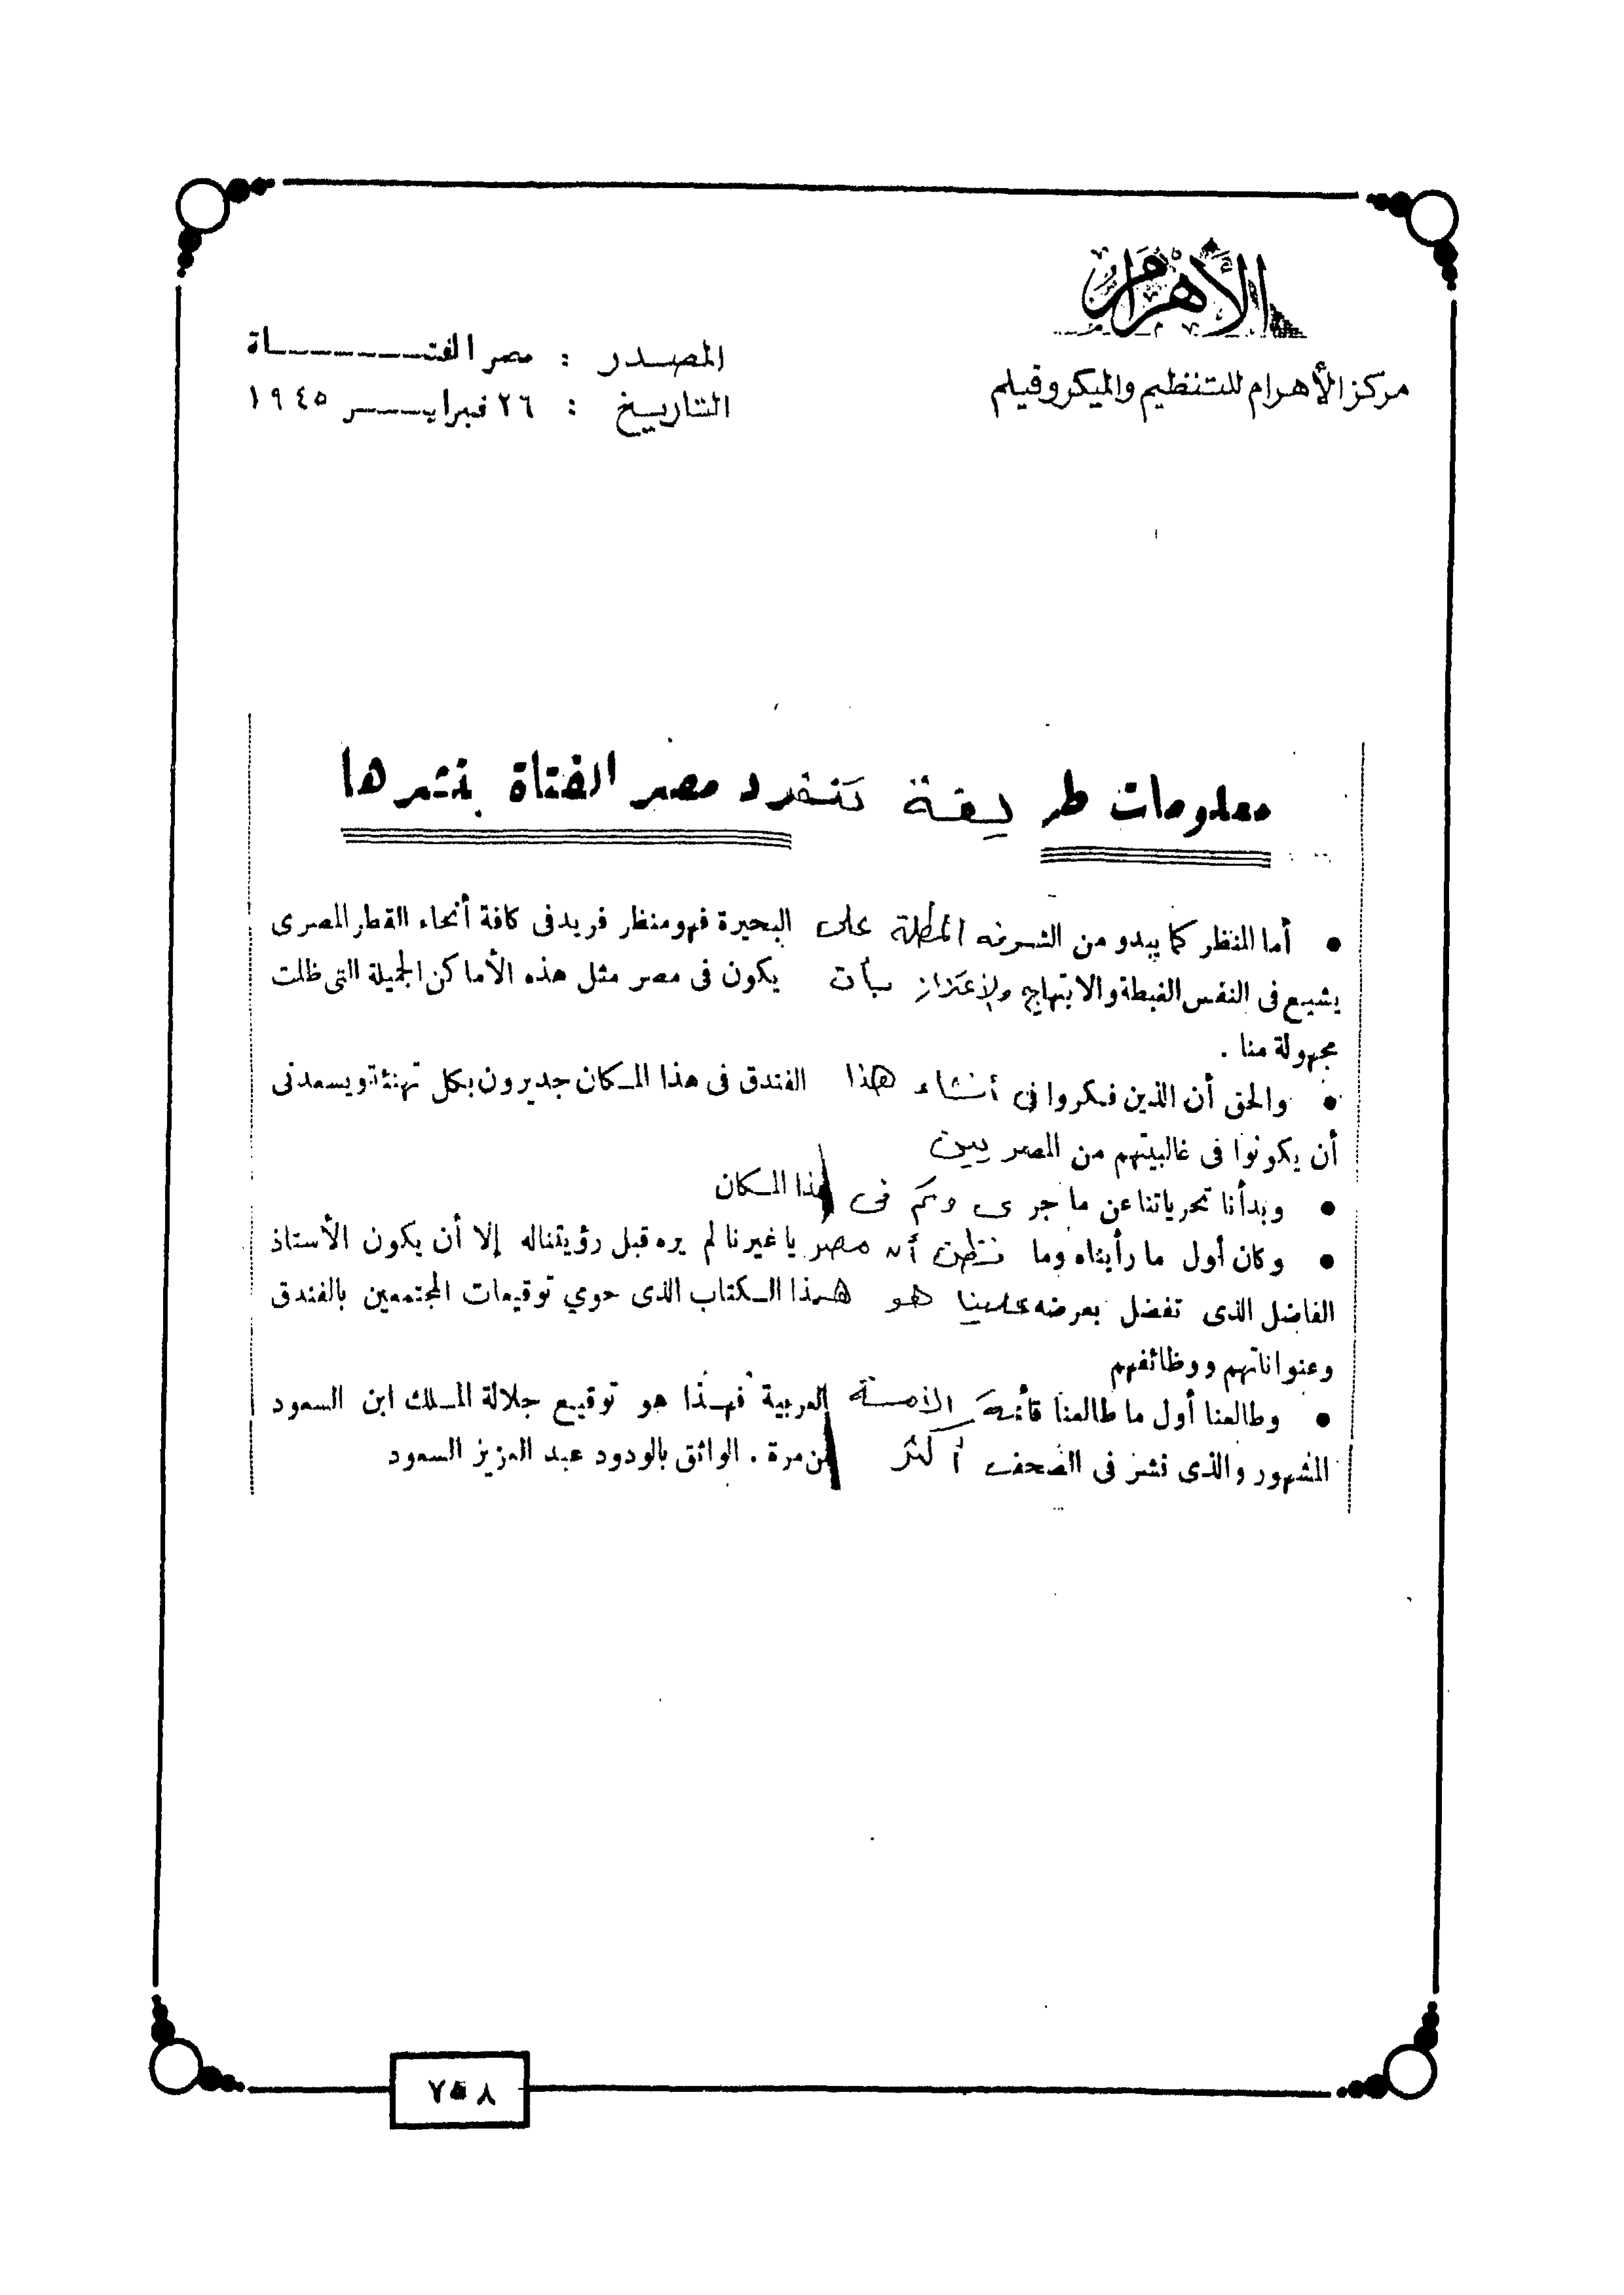 الأهرام
مركز الأهرام للتنظيم والميكروفيلم
المصدر : مصر الفتاة
التاريخ : ٢٦ فبراير ١٩٤٥
معلومات طريفة تنفرد مصر الفتاة بنشرها
● أما المنظر كما يبدو من الشرفه المطلة على البحيرة فهو منظر فريد فى كافة أنحاء القطر المصرى
يشيع فى النفس الغبطة والابتهاج والإعتزاز بأن يكون فى مصر مثل هذه الأماكن الجميلة التى ظلت
مجهولة منا .
● والحق أن الذين فكروا فى أنشاء هذا الفندق فى هذا المكان جديرون بكل تهنئة ويسعدنى
أن يكونوا فى غالبيتهم من المصريين
● وبدأنا تحرياتنا عن ما جرى وتم فى هذا المكان
● وكان أول ما رأيناه وما نظن أن مصريا غيرنا لم يره قبل رؤيتنا له إلا أن يكون الأستاذ
الفاضل الذى تفضل بعرضه علينا هو هذا الكتاب الذى حوي توقيعات المجتمعين بالفندق
وعنواناتهم ووظائفهم
● وطالعنا أول ما طالعنا قائمة الأمة العربية فهذا هو توقيع جلالة الملك ابن السعود
المشهور والذى نشر فى الصحف أكثر من مرة . الواثق بالودود عبد العزيز السعود
٧٥٨